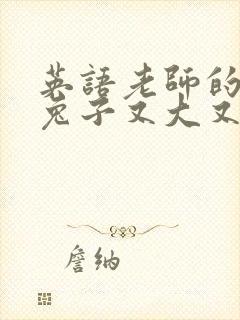 英語老師的
兔子又大又
詹納